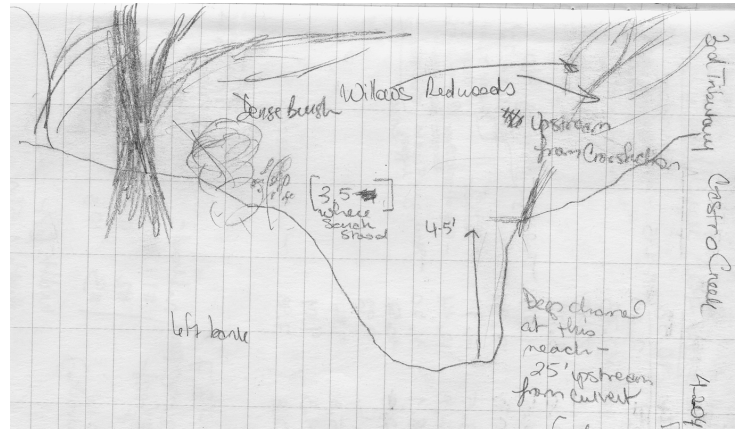 Willows Redwoods
Dense brush
Upstream
from Crossection
[3,5
where
Sarah
stood]
4-5'
left bank
Deep channel
at this
reach -
25' upstream
from culvert.
3rd Tributary Castro Creek